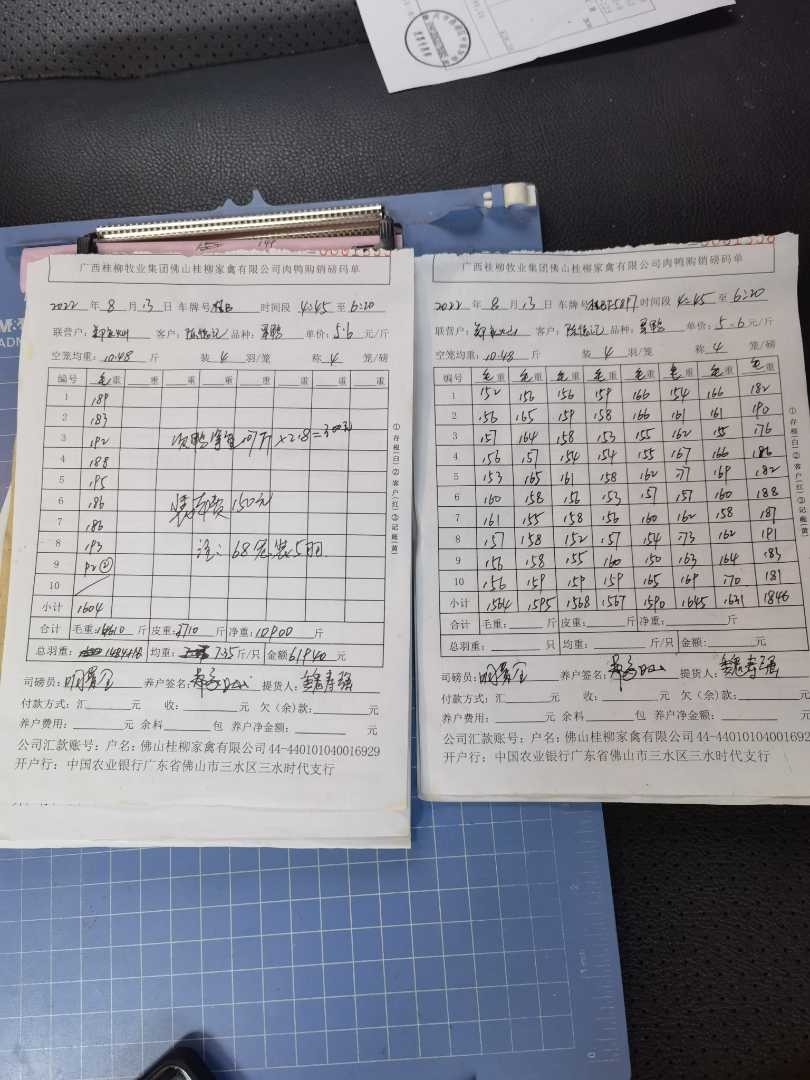 广西桂柳牧业集团佛山桂柳家禽有限公司肉鸭购销磅码单
2022 年 8 月 13 日 车牌号 时间段 4:45 至 6:20
联营户: 客户: 品种: 单价: 5.6 元/斤
空笼均重: 10.48 斤 装 4 羽/笼 称 4 笼/磅
编号 毛重 重 重 重 重 重 重 重
1 189
2 183
3 192 次鸭净重107斤×2.8=300元
4 188
5 195
6 186 150元
7 186
8 193 注:68笼装5羽
9 92②
10
小计 1604
合计 毛重: 斤 皮重: 2710 斤 净重: 10900 斤
总羽重: 1484 均重: 7.35 斤/只 金额 61940 元
司磅员: 养户签名: 提货人: 魏寿强
付款方式: 汇 元 收: 元 欠(余)款: 元
养户费用: 元 余料 包 养户净金额: 元
公司汇款账号: 户名: 佛山桂柳家禽有限公司44-440101040016929
开户行: 中国农业银行广东省佛山市三水区三水时代支行
①存根(白)②客户(红)③记账(黄)
广西桂柳牧业集团佛山桂柳家禽有限公司肉鸭购销磅码单
2022 年 8 月 13 日 车牌号 时间段 4:45 至 6:20
联营户: 客户: 品种: 单价: 5.6 元/斤
空笼均重: 10.48 斤 装 4 羽/笼 称 4 笼/磅
编号 毛重 毛重 毛重 毛重 毛重 毛重 毛重 毛重
1 152 156 156 159 166 154 166 182
2 156 165 159 158 166 161 161 190
3 157 164 158 153 155 162 155 176
4 156 157 154 154 155 167 166 186
5 153 165 161 158 162 177 169 182
6 160 158 156 153 157 157 160 188
7 161 155 158 156 160 162 158 187
8 157 158 152 157 154 173 162 191
9 156 158 155 160 150 163 164 183
10 156 159 159 159 165 169 170 181
小计 1564 1595 1568 1567 1590 1645 1631 1846
合计 毛重: 斤 皮重: 斤 净重: 斤
总羽重: 只 均重: 斤/只 金额: 元
司磅员: 养户签名: 提货人: 魏寿强
付款方式: 汇 元 收: 元 欠(余)款: 元
养户费用: 元 余料 包 养户净金额: 元
公司汇款账号: 户名: 佛山桂柳家禽有限公司44-440101040016929
开户行: 中国农业银行广东省佛山市三水区三水时代支行
①存根(白)②客户(红)③记账(黄)